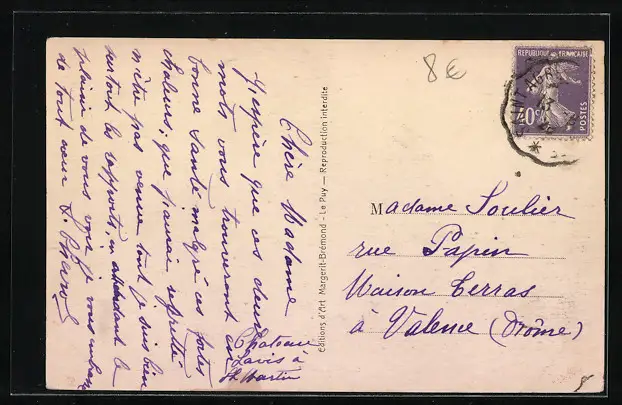 8€
REPUBLIQUE FRANCAISE
40c
POSTES
Chère Madame
J'espère que ces deux
mots vous trouveront en
bonne santé malgré ces fortes
chaleurs, que j'aurais regretté
n'être pas venue tout je suis bien
surtout les rapports, en attendant le
plaisir de vous voir je vous embrasse
de tout cœur
Chateau
Lavis à
St Martin
Editions d'Art Margerit-Brémond - Le Puy — Reproduction interdite
Madame Soulier
rue Papin
Maison Terras
à Valence (Drôme)